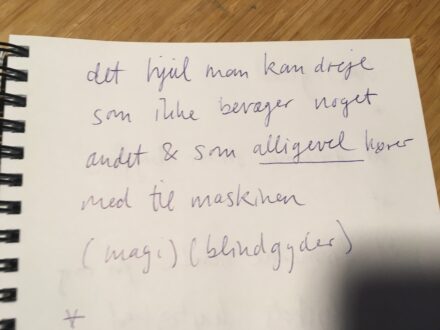 det hjul man kan dreje
som ikke bevæger noget
andet & som alligevel hører
med til maskinen
(magi) (blindgyder)
*